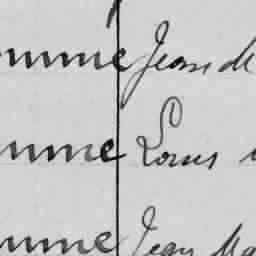 omme Jean M
omme Louis
omme Jean Ma